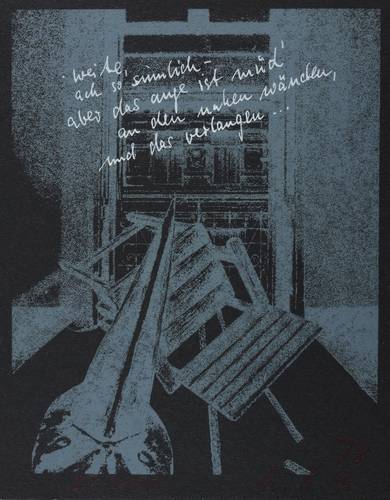 weite,
ach so sinnlich –
aber das auge ist müd'
an den nahen wänden,
und das verlangen ...